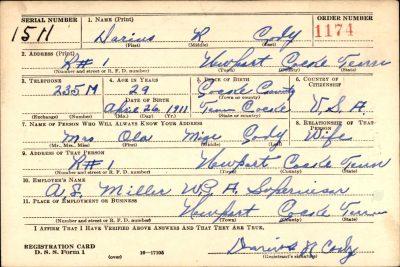 SERIAL NUMBER 1. NAME (Print) ORDER NUMBER
1511 Darius R Cody 1174
(First) (Middle) (Last)
2. ADDRESS (Print)
R# 1 Newport Cocke Tenn
(Number and street or R. F. D. number) (Town) (County) (State)
3. TELEPHONE 4. AGE IN YEARS 5. PLACE OF BIRTH 6. COUNTRY OF CITIZENSHIP
235M 29 Cocke County
DATE OF BIRTH (Town or county)
April 26 1911 Tenn Cocke U S A
(Exchange) (Number) (Mo.) (Day) (Yr.) (State or country)
7. NAME OF PERSON WHO WILL ALWAYS KNOW YOUR ADDRESS 8. RELATIONSHIP OF THAT PERSON
Mrs Ola Cody Wife
(Mr. Mrs. Miss) (First) (Middle) (Last)
9. ADDRESS OF THAT PERSON
R# 1 Newport Cocke Tenn
(Number and street or R. F. D. number) (Town) (County) (State)
10. EMPLOYER'S NAME
A. S. Miller W.P.A. Supervisor
11. PLACE OF EMPLOYMENT OR BUSINESS
Newport Cocke Tenn
(Number and street or R. F. D. number) (Town) (County) (State)
I AFFIRM THAT I HAVE VERIFIED ABOVE ANSWERS AND THAT THEY ARE TRUE.
REGISTRATION CARD Darius R Cody
D. S. S. Form 1 (over) 16—17105 (Registrant's signature)